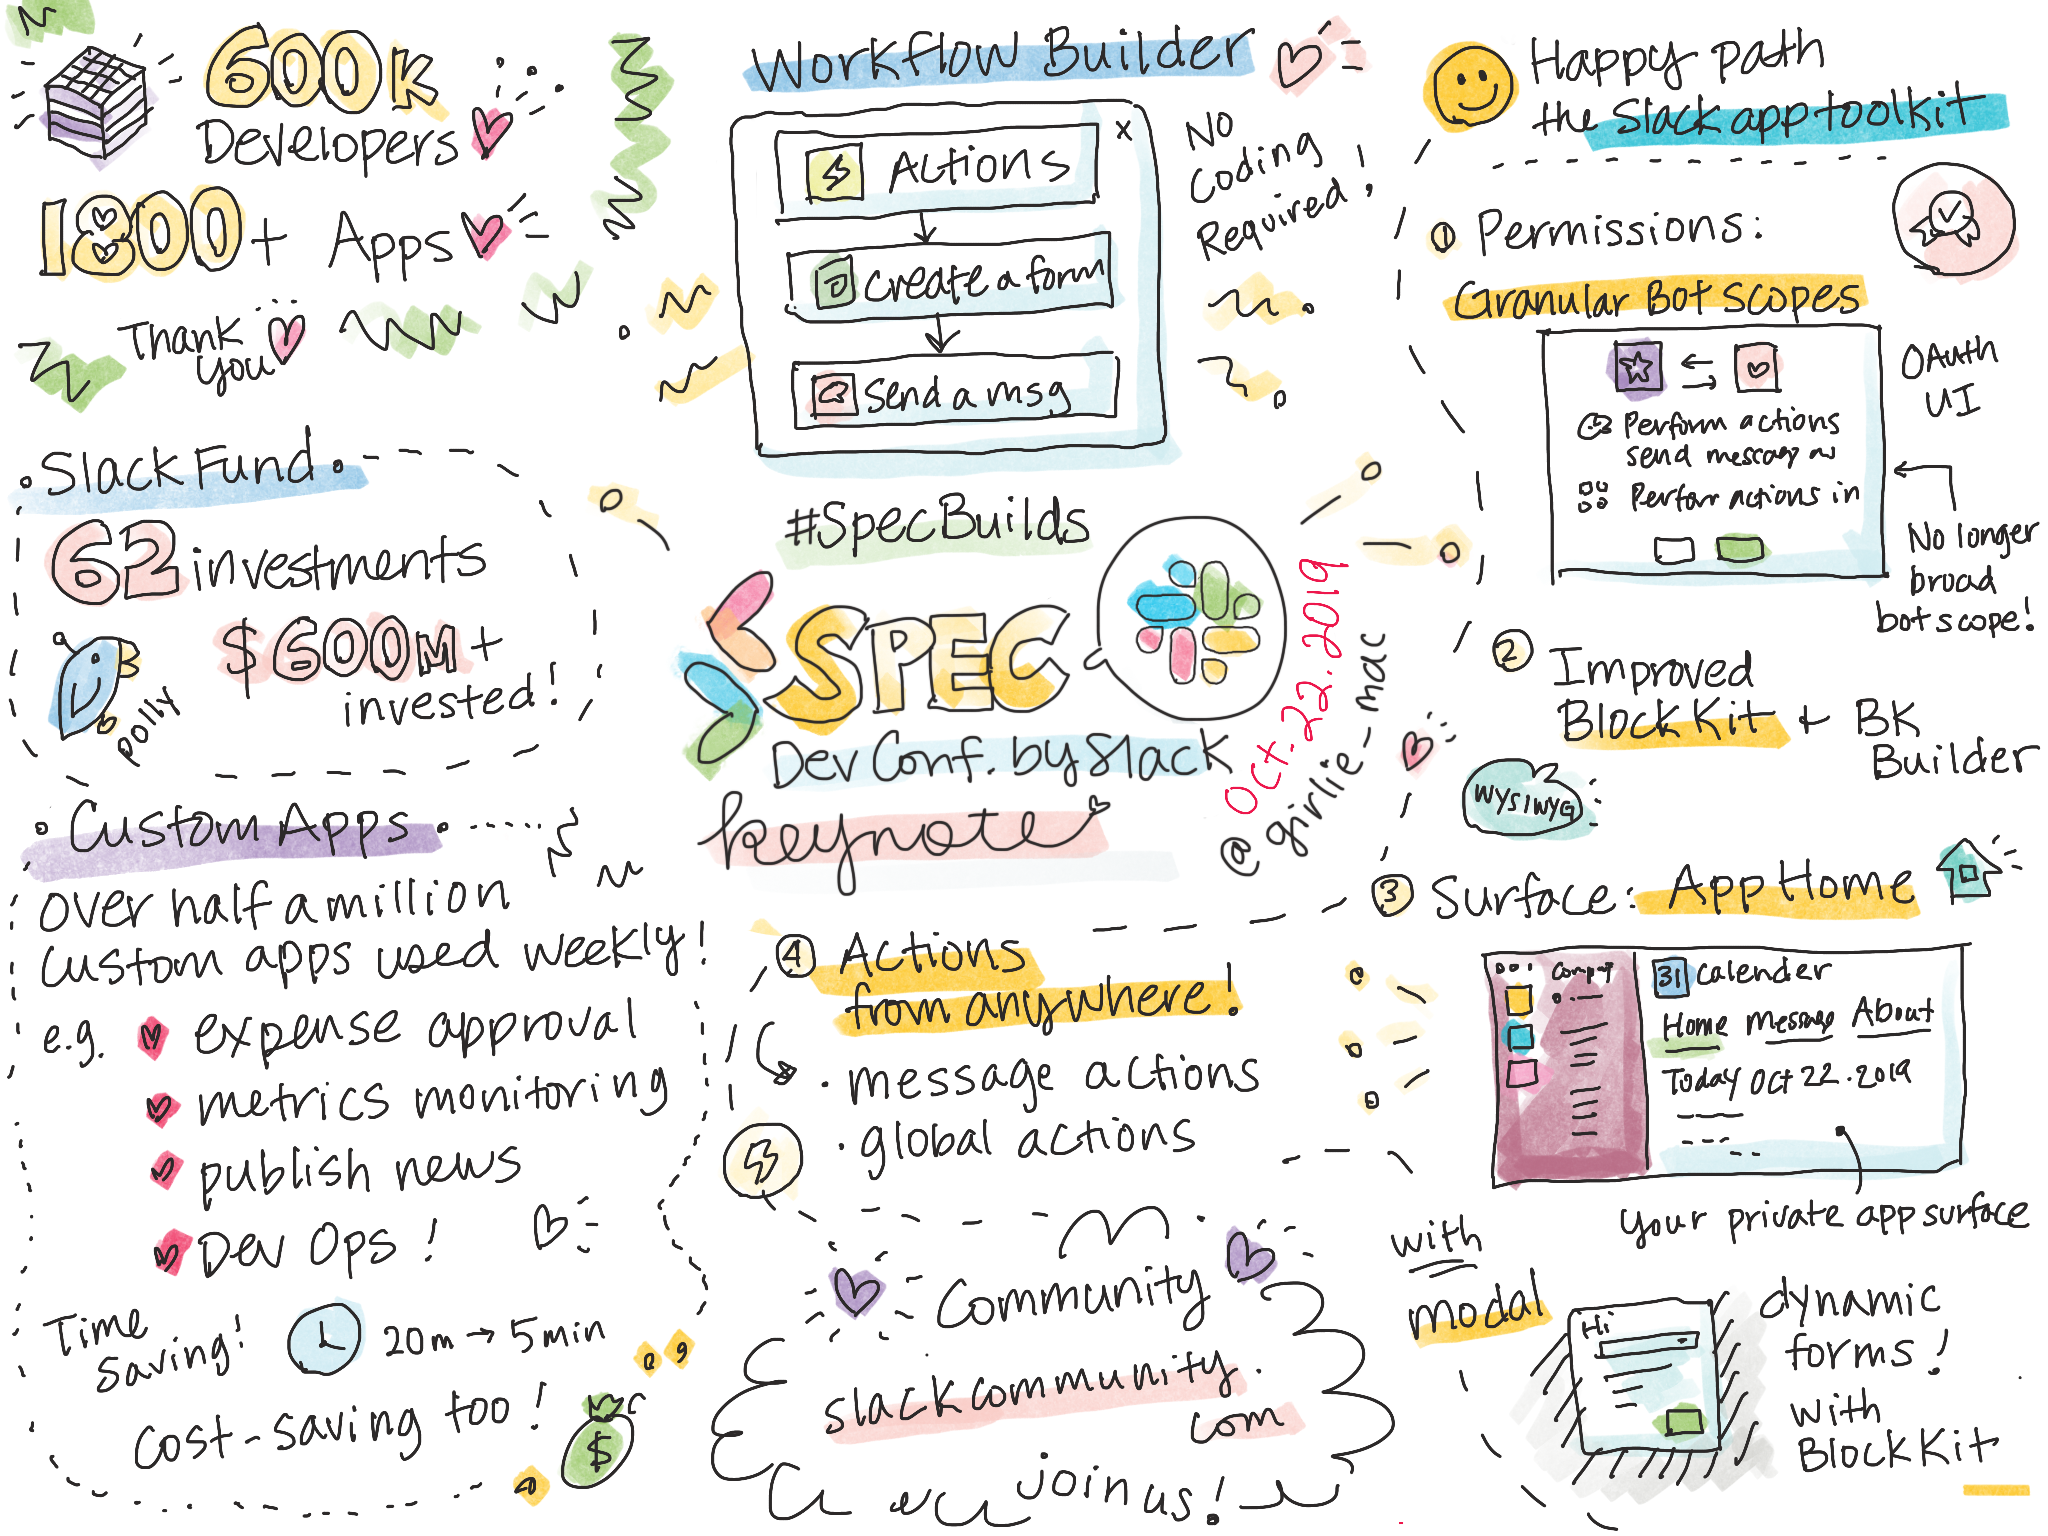 600K
Developers
1800+ Apps
Thank
you
Slack Fund
62 investments
$600M+
invested!
polly
Custom Apps
over half a million
custom apps used weekly!
e.g. expense approval
metrics monitoring
publish news
Dev Ops!
Time
saving!
20m → 5min
cost-saving too!
$
Workflow Builder
x
Actions
create a form
send a msg
No
Coding
Required!
#SpecBuilds
SPEC
Dev Conf. by Slack
keynote
Oct. 22. 2019
@girlie_mac
Happy path
the Slack app toolkit
1 Permissions:
Granular Bot Scopes
OAuth
UI
Perform actions
send message as
Perform actions in
No longer
broad
bot scope!
2 Improved
Block Kit + BK
Builder
WYSIWYG
3 Surface: App Home
31 Calender
Home Message About
Today Oct 22. 2019
your private app surface
with
modal
Hi
dynamic
forms!
with
Block Kit
4 Actions
from anywhere!
· message actions
· global actions
Community
slackcommunity.
com
join us!